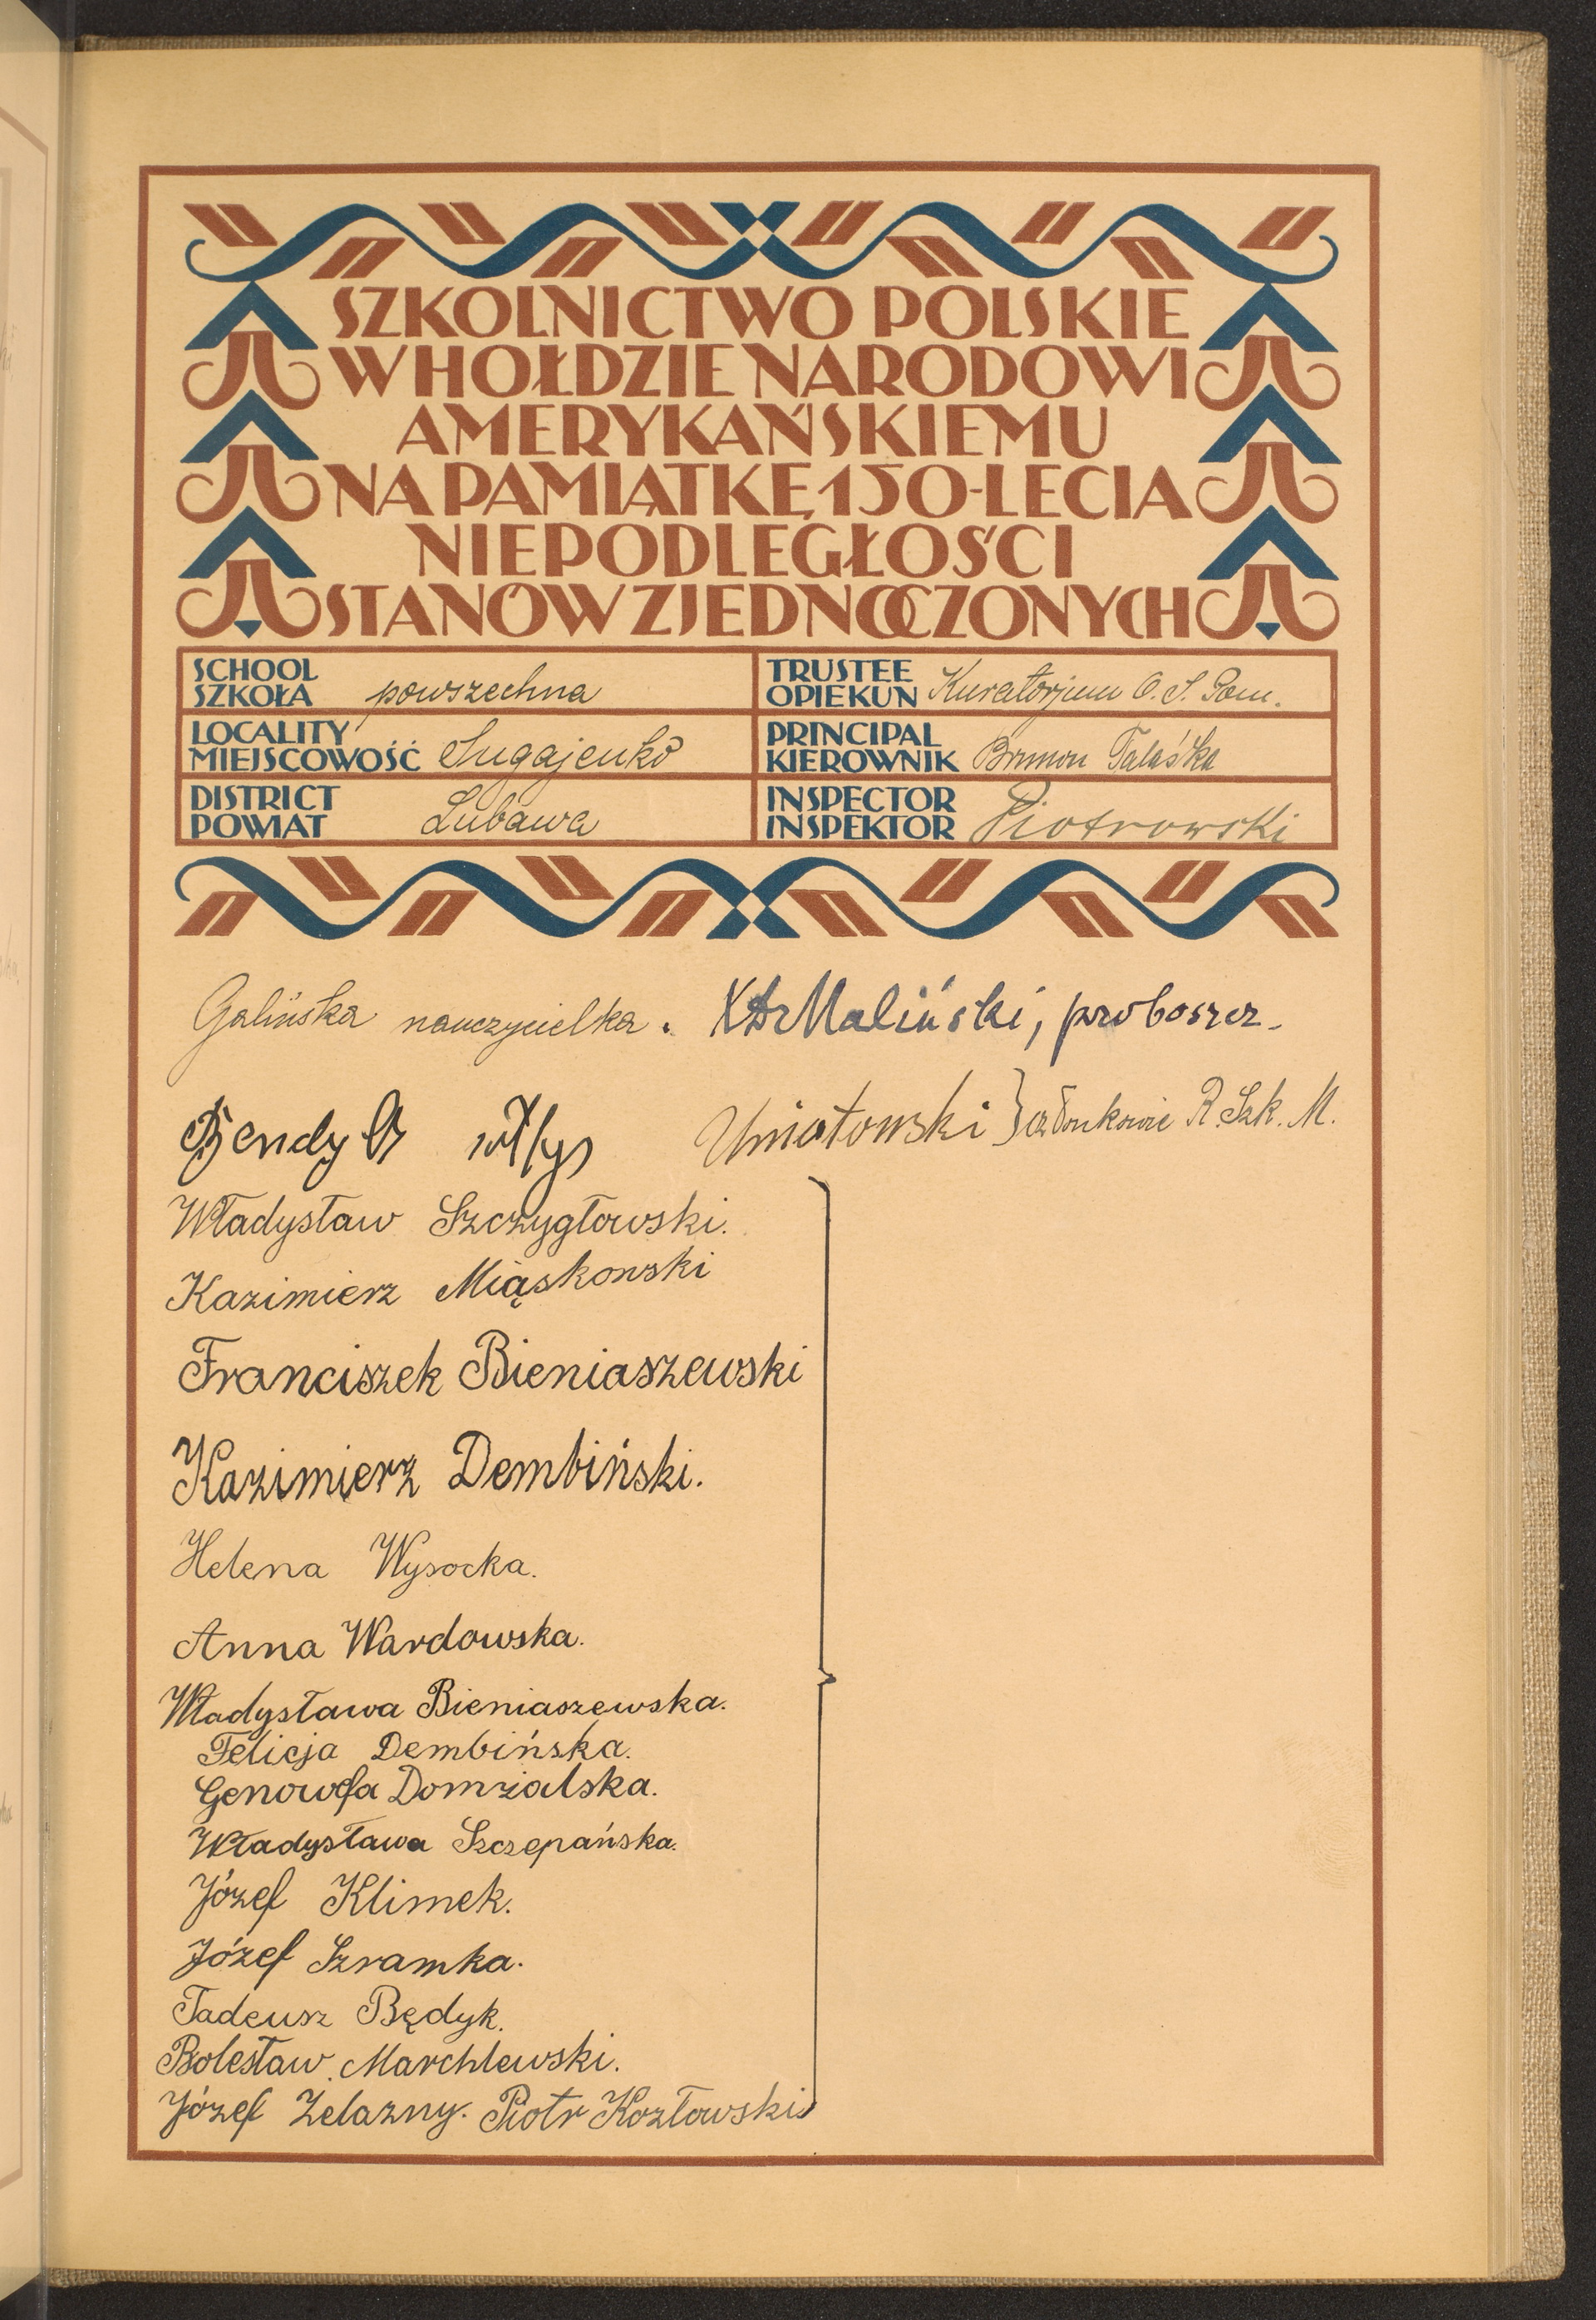 SZKOLNICTWO POLSKIE
W HOŁDZIE NARODOWI
AMERYKAŃSKIEMU
NA PAMIĄTKĘ 150-LECIA
NIEPODLEGŁOŚCI
STANÓW ZJEDNOCZONYCH
SCHOOL
SZKOŁA powszechna
TRUSTEE
OPIEKUN Kuratorjum O. S. Pom.
LOCALITY
MIEJSCOWOŚĆ Sugajenko
PRINCIPAL
KIEROWNIK Brunon Talaśka
DISTRICT
POWIAT Lubawa
INSPECTOR
INSPEKTOR Piotrowski
Galińska nauczycielka. X Dr Maliński, proboszcz.
Uniatowski } członkowie R. Szk. M.
Władysław Szczygłowski.
Kazimierz Miąskowski
Franciszek Bieniaszewski
Kazimierz Dembiński.
Helena Wysocka.
Anna Wardowska.
Władysława Bieniaszewska.
Felicja Dembińska.
Genowefa Domżalska.
Władysława Szczepańska.
Józef Klimek.
Józef Szramka.
Tadeusz Będyk.
Bolesław Marchlewski.
Józef Żelazny. Piotr Kozłowski